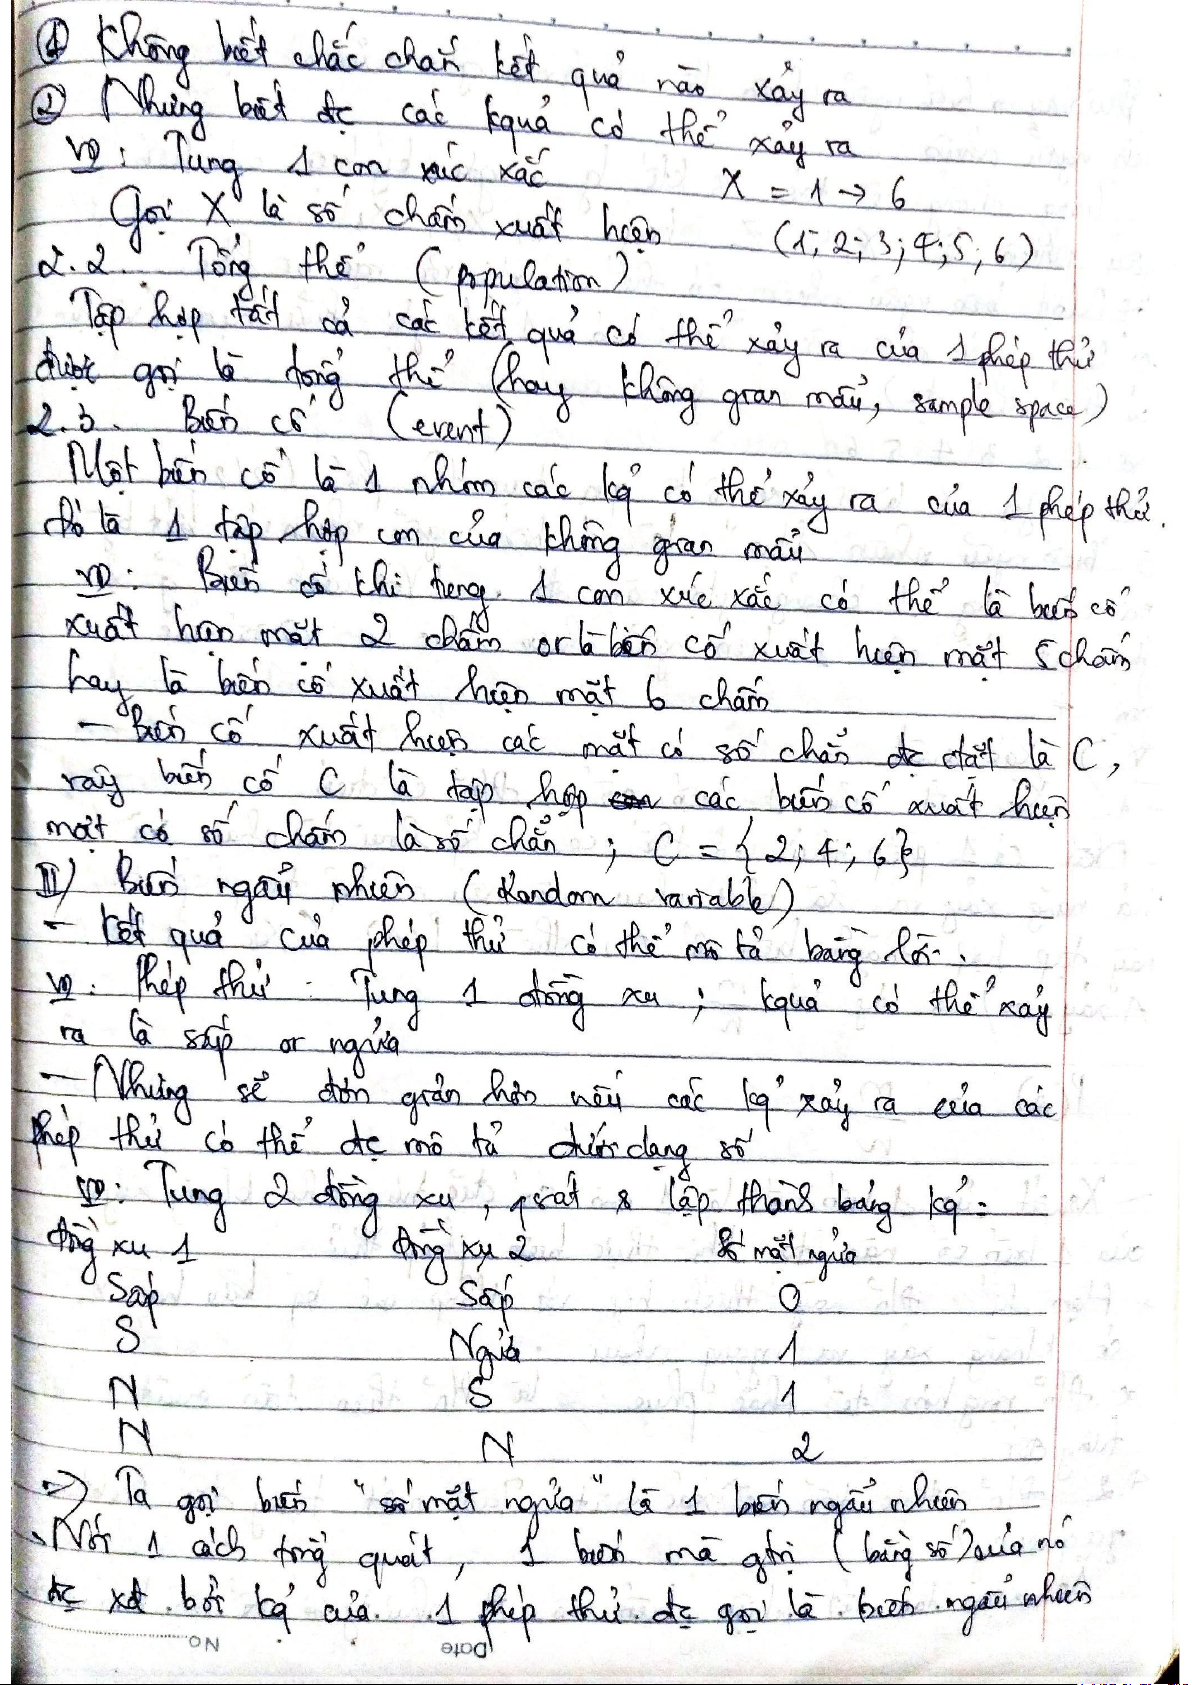 ① Không biết chắc chắn kết quả nào xảy ra
② Nhưng biết đc các kquả có thể xảy ra
VD: Tung 1 con xúc xắc X = 1 → 6
Gọi X là số chấm xuất hiện (1; 2; 3; 4; 5; 6)
2.2. Tổng thể (population)
Tập hợp tất cả các kết quả có thể xảy ra của 1 phép thử
được gọi là tổng thể (hay không gian mẫu, sample space)
2.3. Biến cố (event)
Một biến cố là 1 nhóm các kq có thể xảy ra của 1 phép thử.
Đó là 1 tập hợp con của không gian mẫu
VD: Biến cố khi tung 1 con xúc xắc có thể là biến cố
xuất hiện mặt 2 chấm or là biến cố xuất hiện mặt 5 chấm
hay là biến cố xuất hiện mặt 6 chấm
- Biến cố xuất hiện các mặt có số chẵn đc đặt là C,
vậy biến cố C là tập hợp các biến cố xuất hiện
mặt có số chấm là số chẵn; C = {2; 4; 6}
II) Biến ngẫu nhiên (Random variable)
- Kết quả của phép thử có thể mô tả bằng lời.
VD: Phép thử: Tung 1 đồng xu; kquả có thể xảy
ra là sấp or ngửa
- Nhưng sẽ đơn giản hơn nếu các kq xảy ra của các
phép thử có thể đc mô tả dưới dạng số
VD: Tung 2 đồng xu, qsát & lập thành bảng kq:
Đồng xu 1 Đồng xu 2 Số mặt ngửa
Sấp Sấp 0
S Ngửa 1
N S 1
N N 2
=> Ta gọi biến "số mặt ngửa" là 1 biến ngẫu nhiên
. Nói 1 cách tổng quát, 1 biến mà gtrị (bằng số) của nó
đc xđ bởi kq của 1 phép thử đc gọi là biến ngẫu nhiên
No Date